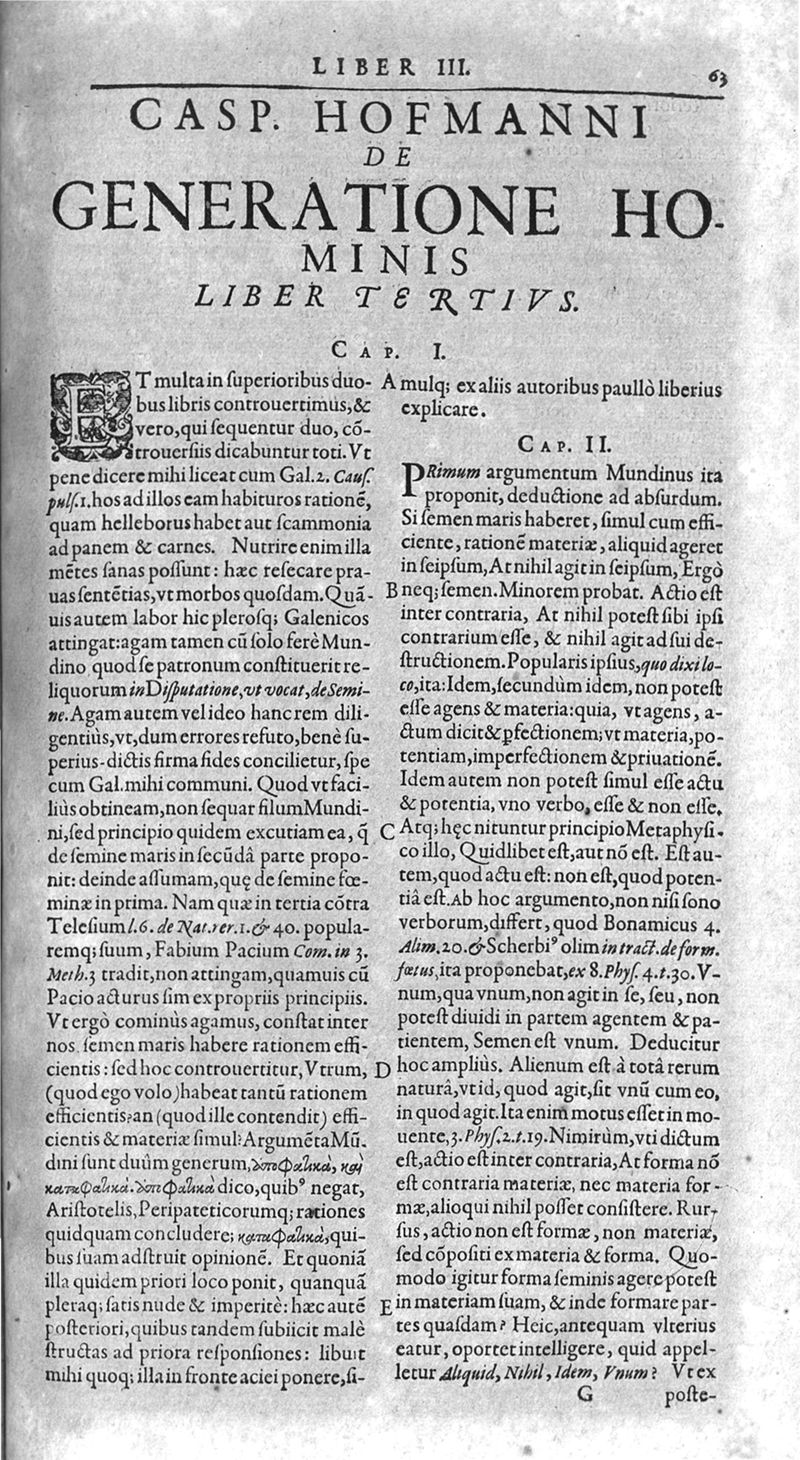 LIBER III.
63
CASP. HOFMANNI
DE
GENERATIONE HO-
MINIS
LIBER TERTIVS.
CAP. I.
ET multa in ſuperioribus duo-
bus libris controuertimus, &
vero, qui ſequentur duo, cõ-
trouerſiis dicabuntur toti. Vt
pene dicere mihi liceat cum Gal. 2. Cauſ.
pulſ. 1. hos ad illos eam habituros rationẽ,
quam helleborus habet aut ſcammonia
ad panem & carnes. Nutrire enim illa
mẽtes ſanas poſſunt: hæc reſecare pra-
uas ſentẽtias, vt morbos quoſdam. Quã-
uis autem labor hic pleroſq; Galenicos
attingat: agam tamen cũ ſolo ferè Mun-
dino quod ſe patronum conſtituerit re-
liquorum in Diſputatione, vt vocat, de Semi-
ne. Agam autem vel ideo hanc rem dili-
gentiùs, vt, dum errores refuto, benè ſu-
perius-dictis firma fides concilietur, ſpe
cum Gal. mihi communi. Quod vt faci-
liùs obtineam, non ſequar filum Mundi-
ni, ſed principio quidem excutiam ea, q̃
de ſemine maris in ſecũdâ parte propo-
nit: deinde aſſumam, quę de ſemine fœ-
minæ in prima. Nam quæ in tertia cõtra
Teleſium l. 6. de Nat. rer. 1. & 40. popula-
remq; ſuum, Fabium Pacium Com. in 3.
Meth. 3 tradit, non attingam, quamuis cũ
Pacio acturus ſim ex propriis principiis.
Vt ergò cominùs agamus, conſtat inter
nos ſemen maris habere rationem effi-
cientis: ſed hoc controuertitur, Vtrum,
(quod ego volo) habeat tantũ rationem
efficientis? an (quod ille contendit) effi-
cientis & materiæ ſimul? Argumẽta Mũ-
dini ſunt duûm generum, ἀποφατικὰ, καὶ
καταφατικά. ἀποφατικὰ dico, quibꝰ negat,
Ariſtotelis, Peripateticorumq; rationes
quidquam concludere; καταφατικὰ, qui-
bus ſuam adſtruit opinionẽ. Et quoniã
illa quidem priori loco ponit, quanquã
pleraq; ſatis nude & imperitè: hæc autẽ
poſteriori, quibus tandem ſubiicit malè
ſtructas ad priora reſponſiones: libuit
mihi quoq; illa in fronte aciei ponere, ſi-
A mulq; ex aliis autoribus paullò liberius
explicare.
CAP. II.
PRimum argumentum Mundinus ita
proponit, deductione ad abſurdum.
Si ſemen maris haberet, ſimul cum effi-
ciente, rationẽ materiæ, aliquid ageret
in ſeipſum, At nihil agit in ſeipſum, Ergò
B neq; ſemen. Minorem probat. Actio eſt
inter contraria, At nihil poteſt ſibi ipſi
contrarium eſſe, & nihil agit ad ſui de-
ſtructionem. Popularis ipſius, quo dixi lo-
co, ita: Idem, ſecundùm idem, non poteſt
eſſe agens & materia: quia, vt agens, a-
ctum dicit & ꝑfectionem; vt materia, po-
tentiam, imperfectionem & priuationẽ.
Idem autem non poteſt ſimul eſſe actu
& potentia, vno verbo, eſſe & non eſſe.
C Atq; hęc nituntur principio Metaphyſi-
co illo, Quidlibet eſt, aut nõ eſt. Eſt au-
tem, quod actu eſt: non eſt, quod poten-
tiâ eſt. Ab hoc argumento, non niſi ſono
verborum, differt, quod Bonamicus 4.
Alim. 20. & Scherbiꝰ olim in tract. de form.
fœtus, ita proponebat, ex 8. Phyſ. 4. t. 30. V-
num, qua vnum, non agit in ſe, ſeu, non
poteſt diuidi in partem agentem & pa-
tientem, Semen eſt vnum. Deducitur
D hoc ampliùs. Alienum eſt à totâ rerum
naturâ, vt id, quod agit, ſit vnũ cum eo,
in quod agit. Ita enim motus eſſet in mo-
uente, 3. Phyſ. 2. t. 19. Nimirùm, vti dictum
eſt, actio eſt inter contraria, At forma nõ
eſt contraria materiæ, nec materia for-
mæ, alioqui nihil poſſet conſiſtere. Rur-
ſus, actio non eſt formæ, non materiæ,
ſed cõpoſiti ex materia & forma. Quo-
modo igitur forma ſeminis agere poteſt
E in materiam ſuam, & inde formare par-
tes quaſdam? Heic, antequam vlterius
eatur, oportet intelligere, quid appel-
letur Aliquid, Nihil, Idem, Vnum? Vt ex
G
poſte-